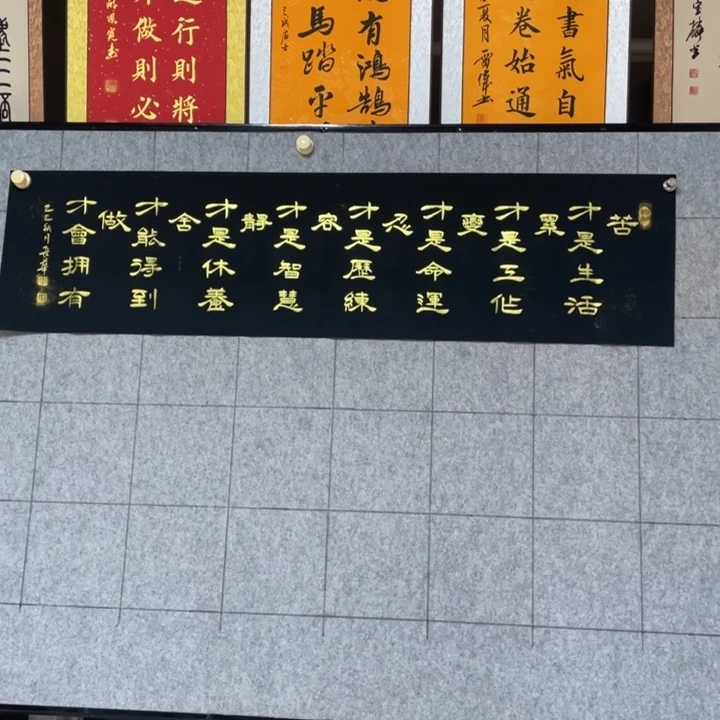 書氣自
卷始通
夏月
有鴻鵠
馬踏平
行則將
做則必
苦
才是生活
累
才是工作
變
才是命運
忍
才是歷練
容
才是智慧
靜
才是休養
舍
才能得到
做
才會拥有
乙巳秋月